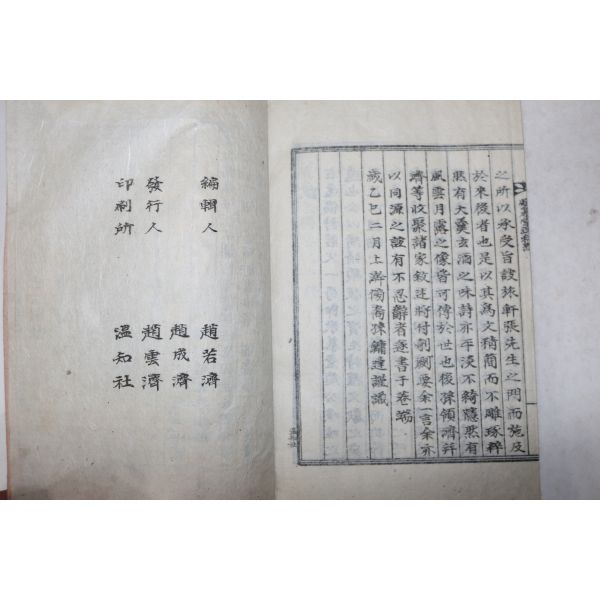 之所以承受旨設旅軒張先生之門而施及
於來後者也是以其爲文精簡而不雕琢粹
然有大羹玄酒之味詩亦平淡不綺隱然有
風雲月露之像皆可傳於世也後孫領濟幷
濟等收聚諸家敘述將付剞劂要余一言余亦
以同源之誼有不忍辭者遂書于卷端
歲乙巳二月上澣傍裔孫鏞達謹識
編輯人 趙若濟
趙成濟
發行人 趙雲濟
印刷所 溫知社